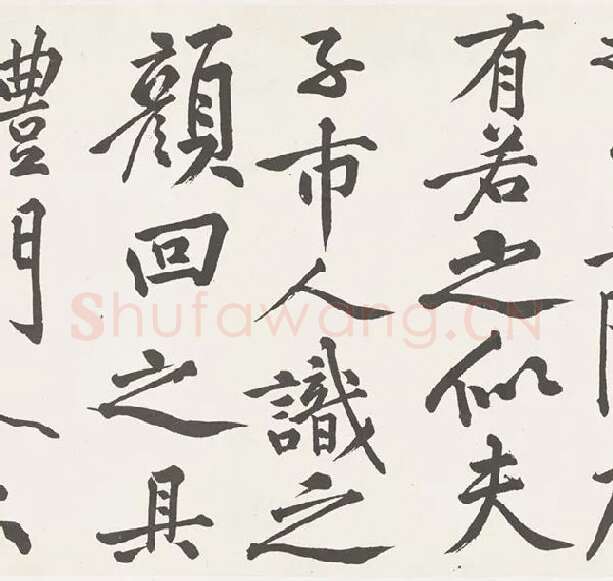 有若之似夫
子市人識之
顏回之具
Shufawang.CN